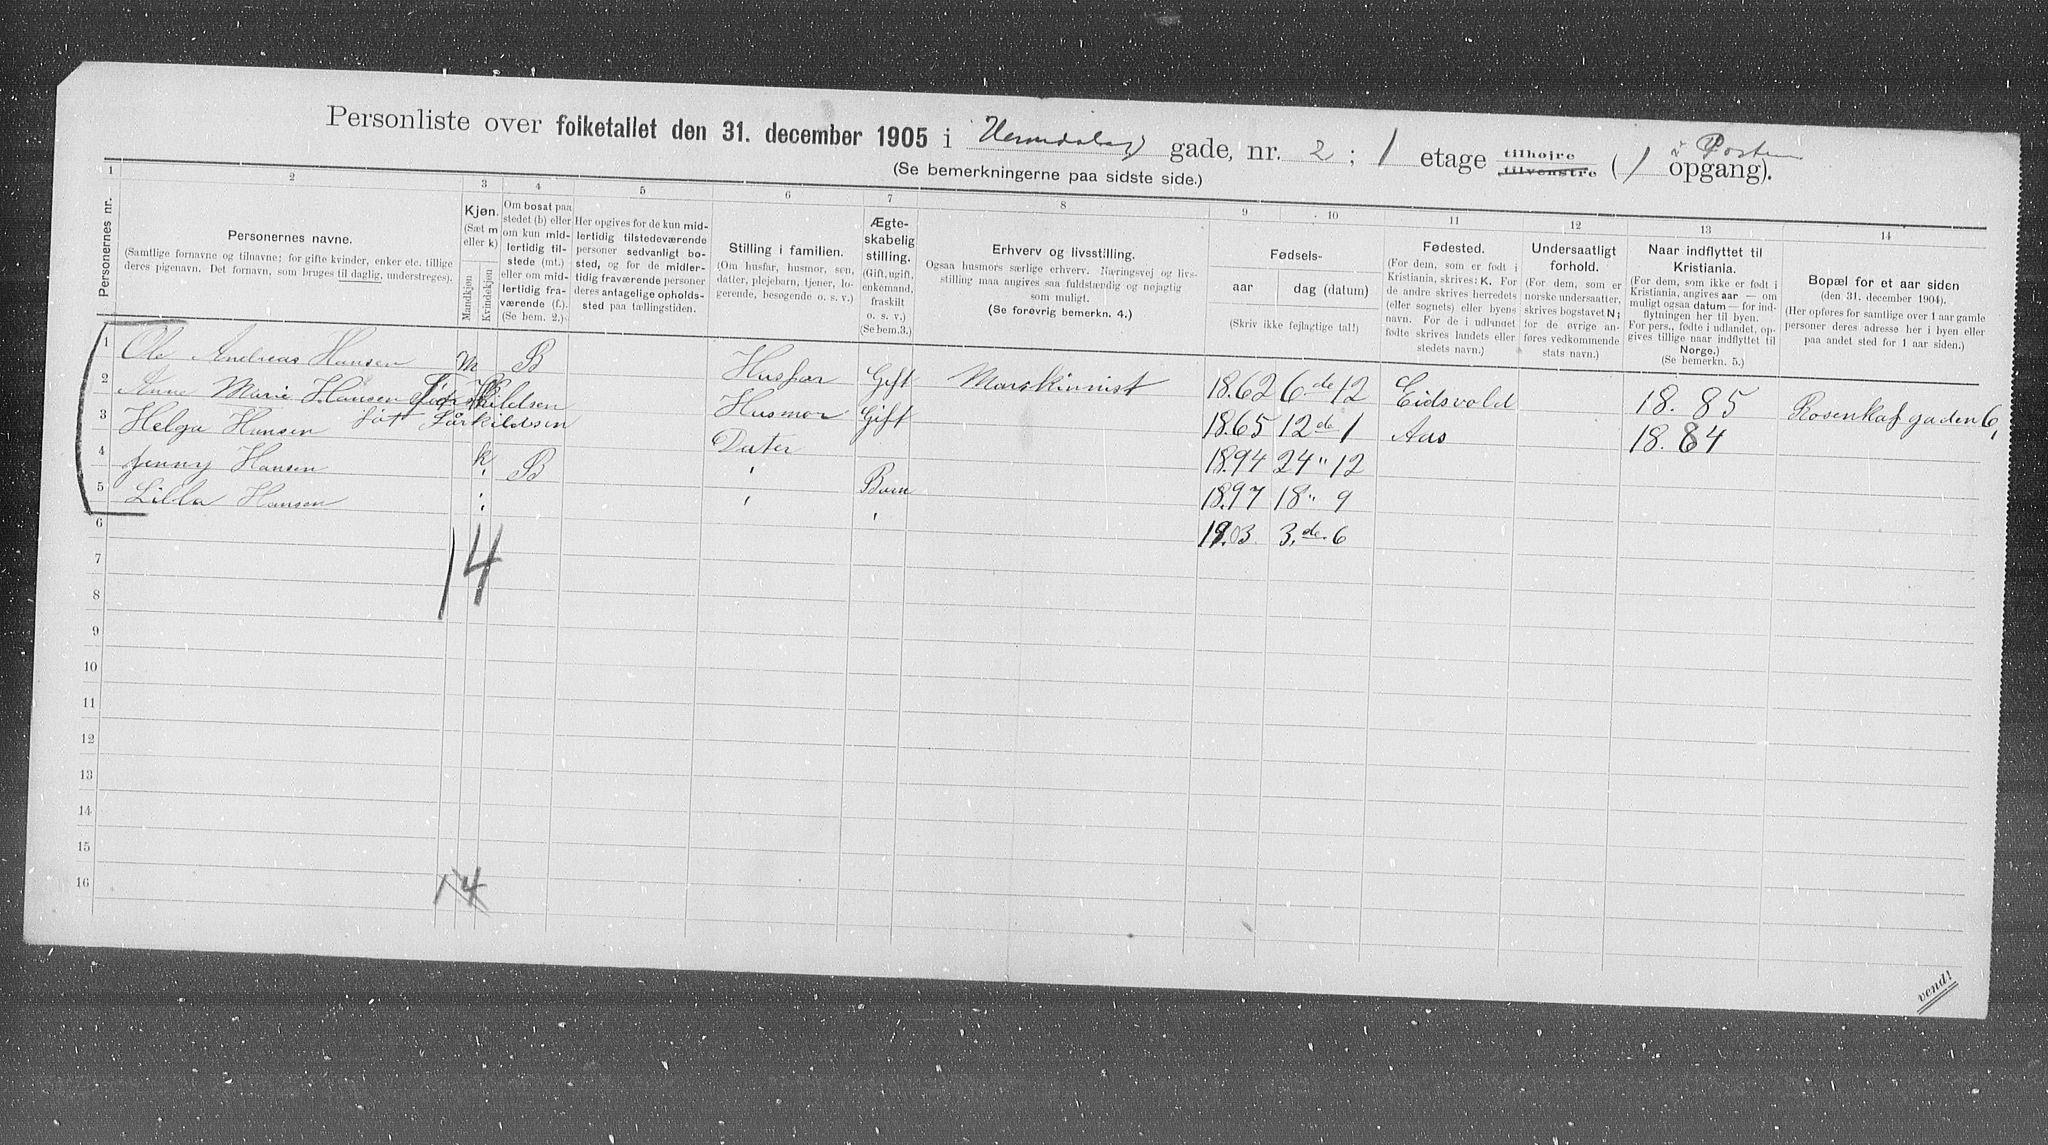 Personliste over folketallet den 31. december 1905 i gade, nr. 2; 1 etage tilhøjre tilvenstre (1 opgang).
(Se bemerkningerne paa sidste side.)
1 2 3 4 5 6 7 8 9 10 11 12 13 14
Personernes nr.
Personernes navne.
(Samtlige fornavne og tilnavne; for gifte kvinder, enker etc. tillige
deres pigenavn. Det fornavn, som bruges til daglig, understreges).
Kjøn.
(Sæt m
eller k)
Mandkjøn
Kvindekjøn
Om bosat paa
stedet (b) eller
om kun mid-
lertidig til-
stede (mt.)
eller om mid-
lertidig fra-
værende (f.).
(Se bem. 2.)
Her opgives for de kun mid-
lertidig tilstedeværende
personer sedvanligt bo-
sted, og for de midler-
tidig fraværende personer
deres antagelige opholds-
sted paa tællingstiden.
Stilling i familien.
(Om husfar, husmor, søn,
datter, plejebarn, tjener, lo-
gerende, besøgende o. s. v.)
Ægte-
skabelig
stilling.
(Gift, ugift,
enkemand,
fraskilt
o. s. v.)
(Se bem.3.)
Erhverv og livsstilling.
Ogsaa husmors særlige erhverv. Næringsvej og livs-
stilling maa angives saa fuldstændig og nøjagtig
som muligt.
(Se forøvrig bemerkn. 4.)
Fødsels-
aar dag (datum)
(Skriv ikke fejlagtige tal!)
Fødested.
(For dem, som er født i
Kristiania, skrives: K. For
de andre skrives herredets
(eller sognets) eller byens
navn. For de i udlandet
fødte skrives landets eller
stedets navn.)
Undersaatligt
forhold.
(For dem, som er
norske undersaatter,
skrives bogstavet N;
for de øvrige an-
føres vedkommende
stats navn.)
Naar indflyttet til
Kristiania.
(For dem, som ikke er født i
Kristiania, angives aar — om
muligt ogsaa datum — for ind-
flytningen her til byen.
For pers., fødte i udlandet, op-
gives tillige naar indflyttet til
Norge.)
(Se bemerkn. 5.)
Bopæl for et aar siden
(den 31. december 1904).
(Her opføres for samtlige over 1 aar gamle
personer deres adresse her i byen eller
paa andet sted for 1 aar siden.)
1 Ole Andreas Hansen m B Husfar Gift Maskinnist 1862 6de 12 Eidsvold 18.85 Rosenkafgaden 6,
2 Anne Marie Hansen Husmor Gift 1865 12de 1 Aas 18.84
3 Helga Hansen k B Dater Barn 1894 24" 12
4 Jenny Hansen " " 1897 18" 9
5 Lilla Hansen " " 19.03 3.de 6
6
7
8
9
10
11
12
13
14
15
16
1 4
1 4
vend!